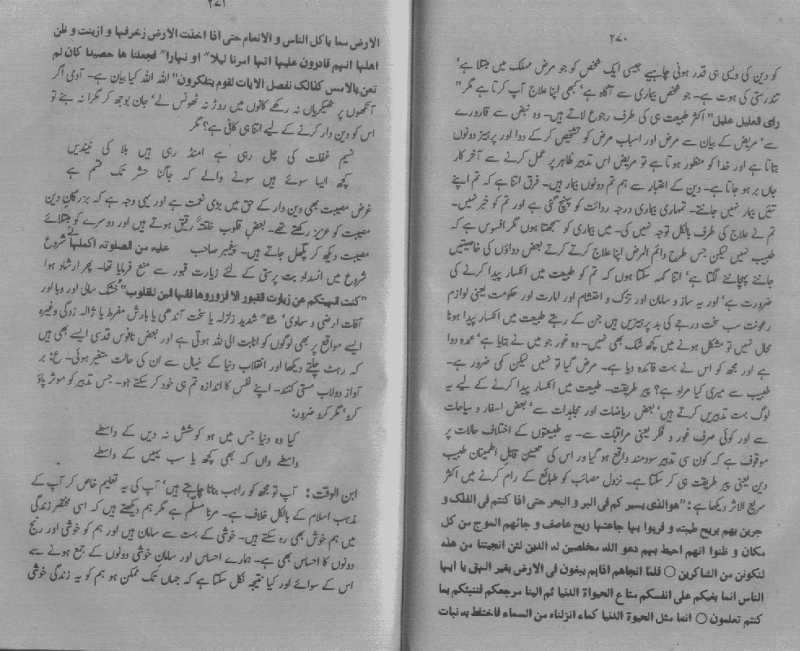 ۲۷۰
کو دین کی ویسی ہی قدر ہونی چاہیے جیسی ایک شخص کو جو مرض مہلک میں مبتلا ہے
تندرستی کی ہوت ہے۔ جو شخص بیماری سے آگاہ ہے' کبھی اپنا علاج آپ کرتا ہے مگر "
رای العلیل علیل" اکثر طبیب ہی کی طرف رجوع لاتے ہیں۔ وہ نبض سے قارورے
سے' مریض کے بیان سے مرض اور اسباب مرض کو تشخیص کر کے دوا اور پرہیز دونوں
بتاتا ہے اور خدا کو منظور ہوتا ہے تو مریض اس تدبیر ظاہر پر عمل کرنے سے آخر کار
جاں بر ہو جاتا ہے۔ دین کے اعتبار سے ہم تم دونوں بیمار ہیں۔ فرق اتنا ہے کہ تم اپنے
تئیں بیمار نہیں جانتے۔ تمہاری بیماری درجہ ردائت کو پہنچ گئی ہے اور تم کو خبر نہیں۔
تم نے علاج کی طرف بالکل توجہ نہیں کی۔ میں بیماری کو سمجھتا ہوں مگر افسوس ہے کہ
طبیب نہیں لیکن جس طرح دائم المرض اپنا علاج کرتے کرتے بعض دواؤں کی خاصیتیں
جاننے پہچاننے لگتا ہے' اتنا کہہ سکتا ہوں کہ تم کو طبیعت میں انکسار پیدا کرنے کی
ضرورت ہے' اور یہ ساز و سامان اور تزک و احتشام اور امارت اور حکومت یعنی لوازم
رعونت سب سخت درجے کی بد پرہیزیں ہیں جن کے رہتے طبیعت میں انکسار پیدا ہونا
محال نہیں تو مشکل ہونے میں کچھ شک بھی نہیں۔ وہ غور جو میں نے بتایا ہے' عمدہ دوا
ہے اور مجھ کو اس نے بہت فائدہ دیا ہے۔ مرض گیا تو نہیں لیکن کمی ضرور ہے۔
طبیب سے میری کیا مراد ہے؟ پیر طریقت۔ طبیعت میں انکسار پیدا کرنے کے لیے یہ
لوگ بہت تدبیریں کرتے ہیں' بعض ریاضات اور مجاہدات سے' بعض اسفار و سیاحات
سے اور کوئی صرف غور و فکر یعنی مراقبات سے۔ یہ طبیعتوں کے اختلاف حالات پر
موقوف ہے کہ کون سی تدبیر سودمند واقع ہو گی اور اس کی تعیین قابل اطمینان طبیب
دین یعنی پیر طریقت ہی کر سکتا ہے۔ نزول مصائب کو طبائع کے رام کرنے میں اکثر
سریع الاثر دیکھا ہے : "ھوالذی یسیر کم فی البر و البحر حتی اذا کنتم فی الفلک و
جرین بھم بریح طیبتہ و فرحوا بھا جاءتھا ریح عاصف و جائھم الموج من کل
مکان و ظنوا انھم احیط بھم دعو اللہ مخلصین لہ الدین لئن انجیتنا من ھذہ
لنکونن من الشاکرین ○ فلما انجاھم اذاہم یبغون فی الارض بغیر الحق یا ایھا
الناس انما بغیکم علی انفسکم متاع الحیواۃ الدنیا ثم الینا مرجعکم فننبئکم بما
کنتم تعلمون ○ انما مثل الحیوۃ الدنیا کماء انزلناہ من السماء فاختلط بہ نبات
۲۷۱
الارض مما یاکل الناس و الانعام حتی اذا اخذت الارض زخرفھا و ازینت و ظن
اھلھا انھم قادرون علیھا اتھا امرنا لیلا" او نھارا" فجعلنا ھا حصیدا کان لم
تغن بالامس کذالک نفصل الایات لقوم یتفکرون" اللہ اللہ کیا بیان ہے۔ آدمی اگر
آنکھوں پر ٹھیکریاں نہ رکھے کانوں میں روڑ نہ ٹھونس لے' جان بوجھ کر مگرا نہ بنے تو
اس کو دین دار کرنے کے لیے اتنا ہی کافی ہے؟ مگر
نسیم غفلت کی چل رہی ہے امنڈ رہی ہیں بلا کی نیندیں
کچھ ایسا سوئے ہیں سونے والے کہ جاگنا حشر تک قسم ہے
غرض مصیبت بھی دین دار کے حق میں بڑی نعمت ہے اور یہی وجہ ہے کہ بزرگان دین
مصیبت کو عزیز رکھتے تھے۔ بعض قلوب خلقتہً رقیق ہوتے ہیں اور دوسرے کو مبتلائے
مصیبت دیکھ کر پگھل جاتے ہیں۔ پیغمبر صاحب علیہ من الصلوتہ اکملھا شروع
شروع میں انسداد بت پرستی کے لئے زیارت قبور سے منع فرمایا تھا۔ پھر ارشاد ہوا
"کنت نھیتکم عن زیارت القبور الا فزوروھا فانھا الین للقلوب" خشک سالی اور وبا اور
آفات ارضی و سماوی' مثلا" شدید زلزلہ یا سخت آندھی یا بارش مفرط یا ژالہ زدگی وغیرہ
ایسے مواقع پر بھی لوگوں کو انابت الی اللہ ہوتی ہے اور بعض نفوس قدسی ایسے بھی ہیں
کہ رہٹ چلتے دیکھا اور انقلاب دنیا کے خیال سے ان کی حالت متغیر ہوئی۔ ع: بر
آواز دولاب مستی کنند۔ اپنے نفس کا اندازہ تم ہی خود کر سکتے ہو۔ جس تدبیر کو موثر پاؤ
کرو' مگر کرو ضرور:
کیا وہ دنیا جس میں ہو کوشش نہ دیں کے واسطے
واسطے واں کے بھی کچھ یا سب یہیں کے واسطے
ابن الوقت : آپ تو مجھ کو راہب بنانا چاہتے ہیں' آپ کی یہ تعلیم خاص کر آپ کے
مذہب اسلام کے بالکل خلاف ہے۔ مرنا مسلم ہے مگر ہم دیکھتے ہیں کہ اسی مختصر زندگی
میں ہم خوش بھی رہ سکتے ہیں۔ خوشی کے بہت سے سامان ہیں اور ہم کو خوشی اور رنج
دونوں کا احساس بھی ہے۔ ہمارے احساس اور سامان خوشی دونوں کے جمع ہونے سے
اس کے سوائے اور کیا نتیجہ نکل سکتا ہے کہ جہاں تک ممکن ہو ہم کو یہ زندگی خوشی